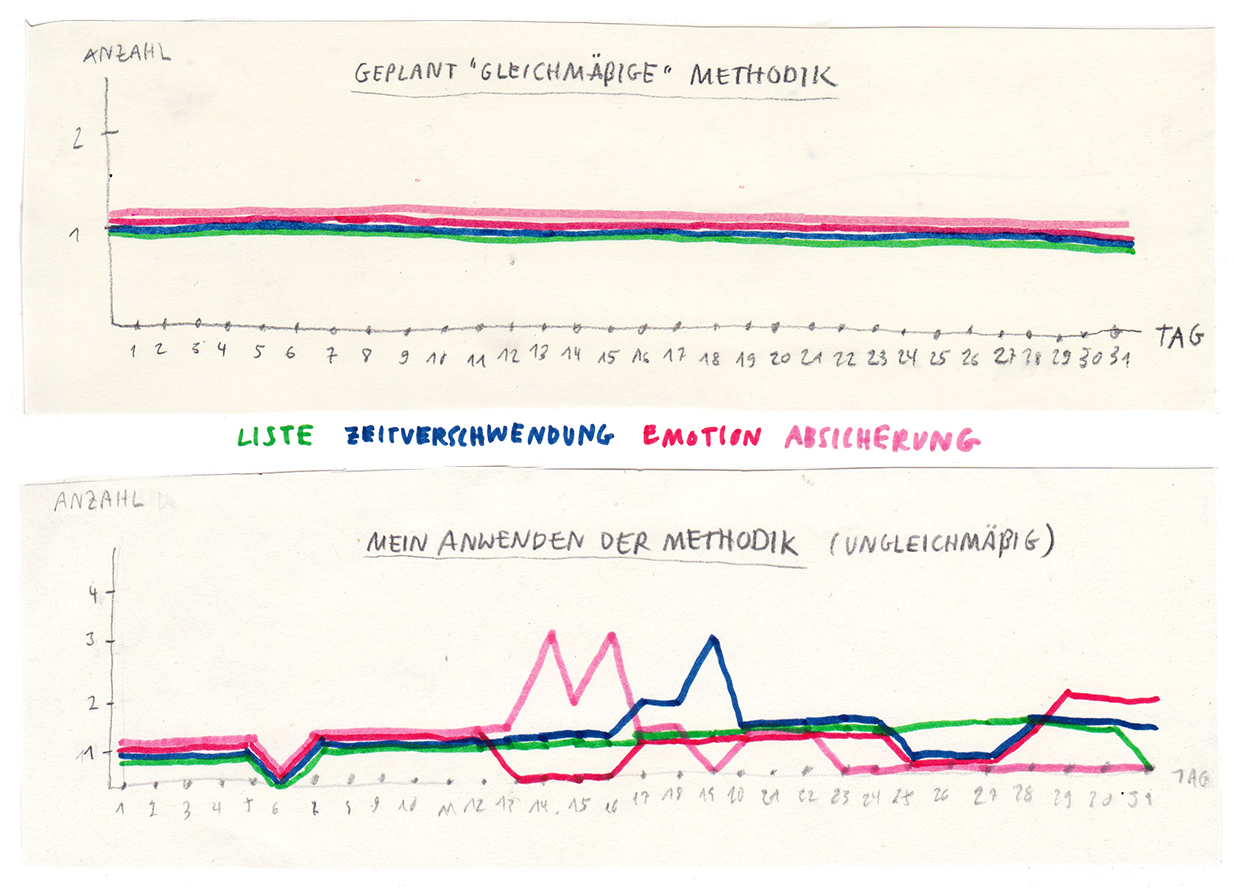 ANZAHL
GEPLANT "GLEICHMÄßIGE" METHODIK
2
1
1 2 3 4 5 6 7 8 9 10 11 12 13 14 15 16 17 18 19 20 21 22 23 24 25 26 27 28 29 30 31 TAG
LISTE ZEITVERSCHWENDUNG EMOTION ABSICHERUNG
ANZAHL
MEIN ANWENDEN DER METHODIK (UNGLEICHMÄßIG)
4
3
2
1
1 2 3 4 5 6 7 8 9 10 11 12 13 14 15 16 17 18 19 20 21 22 23 24 25 26 27 28 29 30 31 TAG